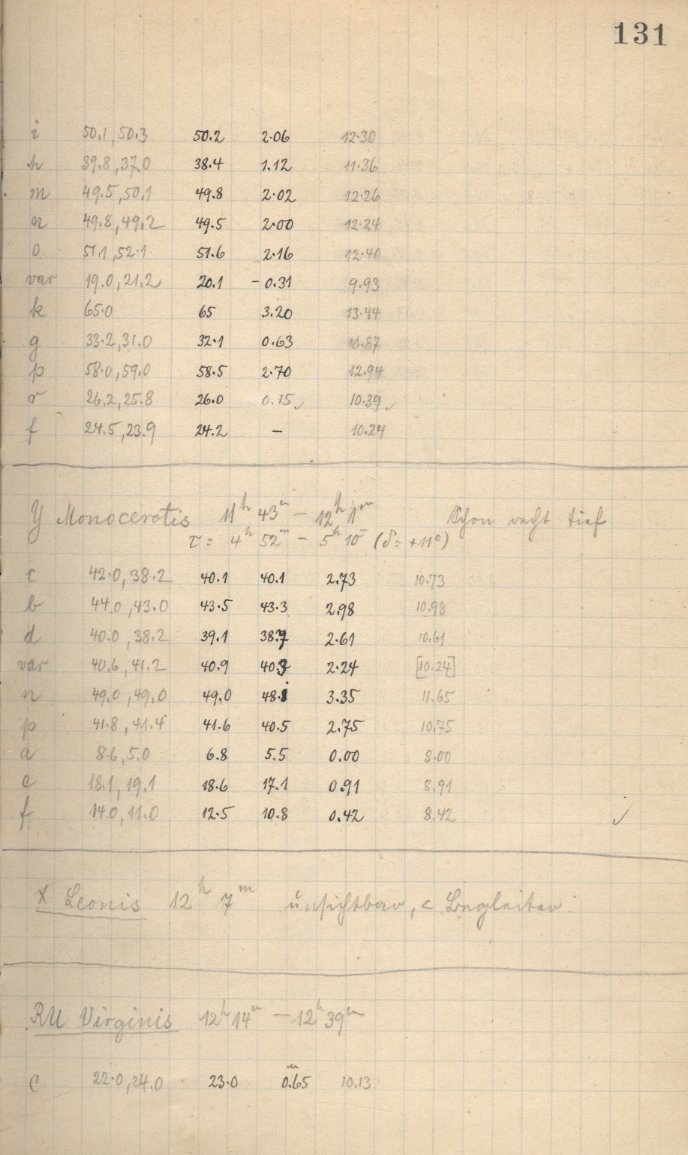 131
i 50.1, 50.3 50.2 2.06 12.30
h 39.8, 37.0 38.4 1.12 11.36
m 49.5, 50.1 49.8 2.02 12.26
n 49.8, 49.2 49.5 2.00 12.24
o 51.1, 52.1 51.6 2.16 12.40
var 19.0, 21.2 20.1 -0.31 9.93
k 65.0 65 3.20 13.44
g 33.2, 31.0 32.1 0.63 10.87
p 58.0, 59.0 58.5 2.70 12.94
r 26.2, 25.8 26.0 0.15 ✓ 10.39 ✓
f 24.5, 23.9 24.2 – 10.24
Y Monocerotis 11h 43m – 12h 1m Schon recht tief
τ = 4h 52m – 5h 10m (δ = +11°)
c 42.0, 38.2 40.1 40.1 2.73 10.73
b 44.0, 43.0 43.5 43.3 2.98 10.98
d 40.0, 38.2 39.1 38.7 2.61 10.61
var 40.6, 41.2 40.9 40.3 2.24 [10.24]
n 49.0, 49.0 49.0 48.1 3.35 11.65
p 41.8, 41.4 41.6 40.5 2.75 10.75
a 8.6, 5.0 6.8 5.5 0.00 8.00
e 18.1, 19.1 18.6 17.1 0.91 8.91
f 14.0, 11.0 12.5 10.8 0.42 8.42 ✓
X Leonis 12h 7m unsichtbar, < Begleiter.
RU Virginis 12h 14m – 12h 39m
c 22.0, 24.0 23.0 0.65 10.13